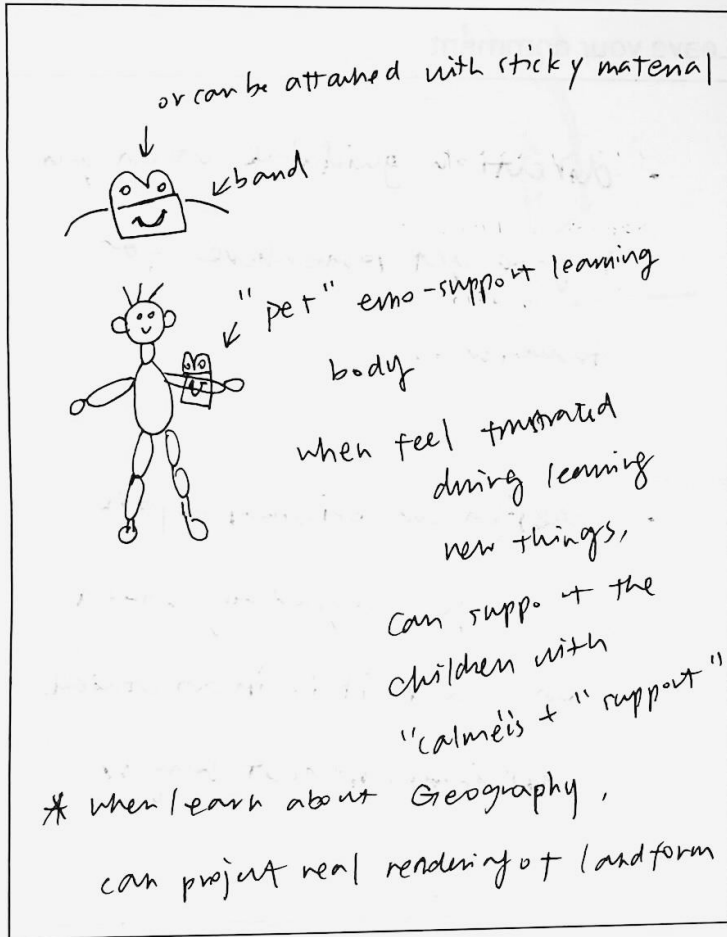 or can be attached with sticky material
band
"pet" emo-support learning
body
when feel frustrated
during learning
new things,
can support the
children with
"calmeis + "support"
* when learn about Geography,
can project real rendering of landform